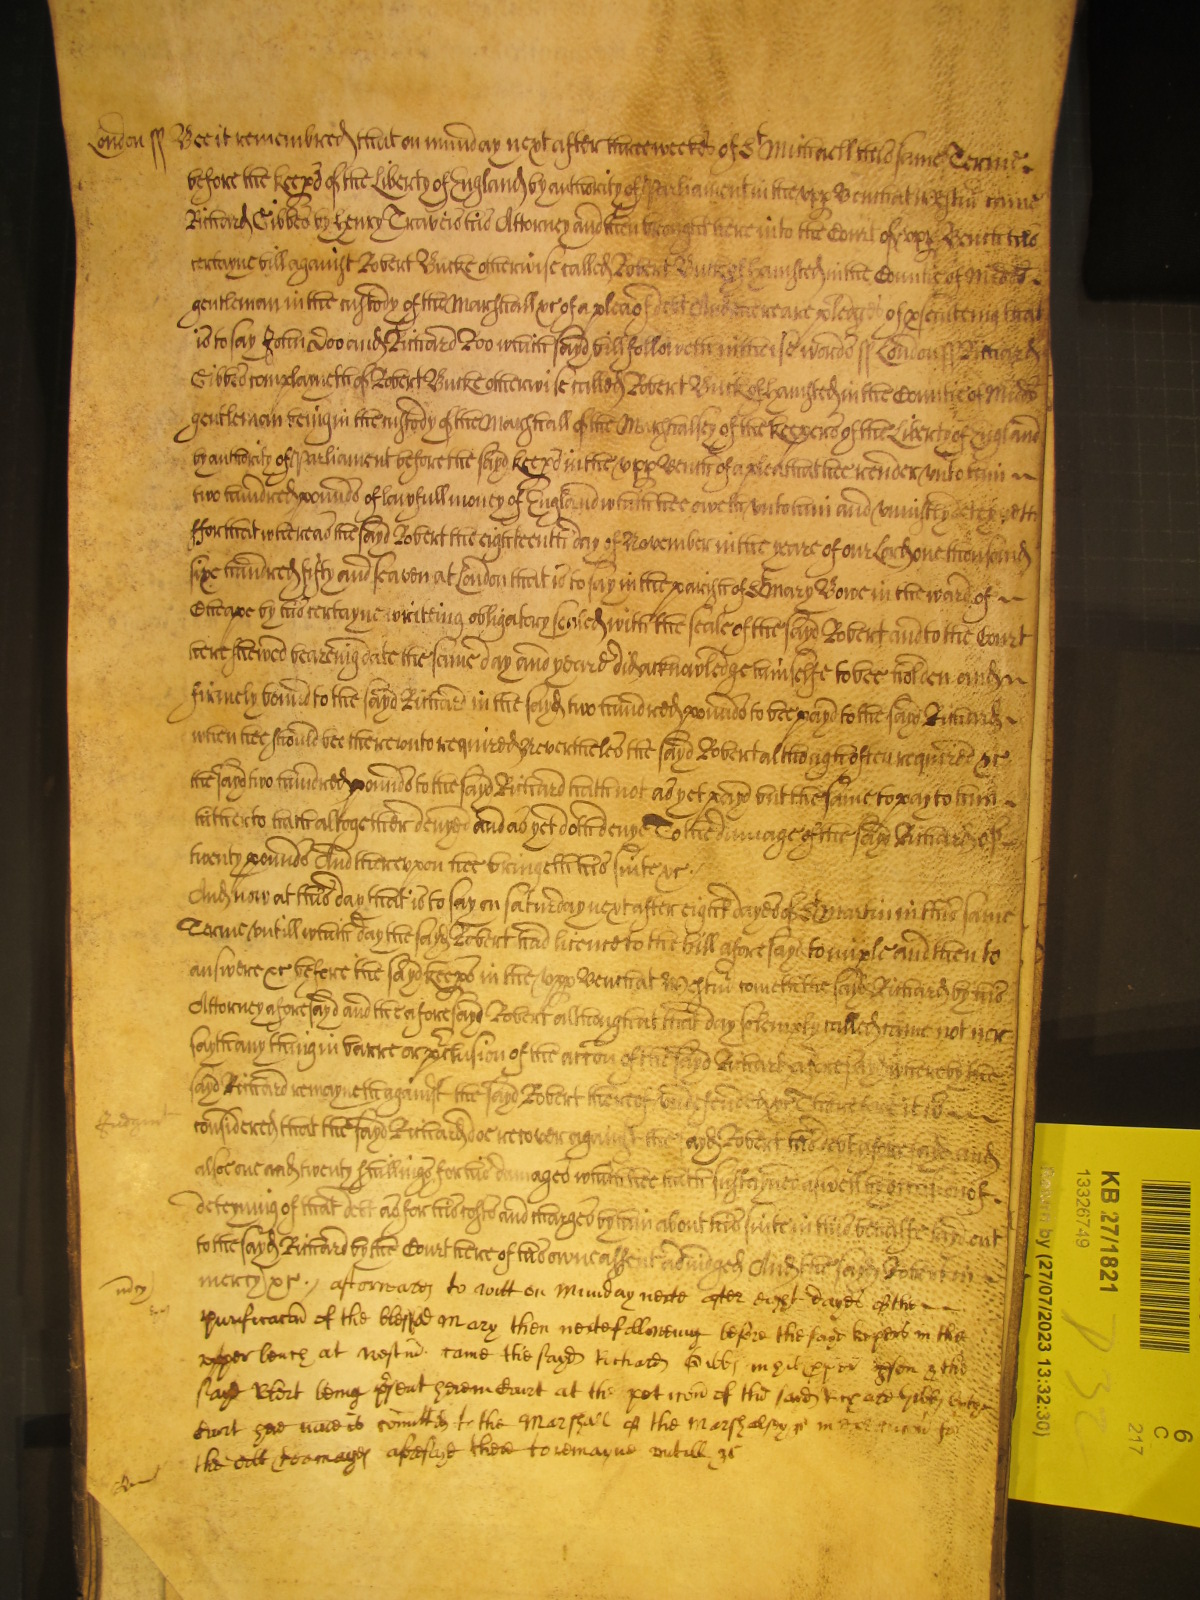 London ss Bee it remembred that on munday next after three weekes of St Michaell this same Terme
before the keeps of the Liberty of England by authority of Parliament in the upp Bench at Westm came
Richard Gibbes by Henry Travers his Attorney and then brought here into the Court of upp Bench his
certayne bill against Robert Bucke otherwise called Robert Buck of Hamsted in the Countie of Midds
gentleman in the custody of the Marshall &c of a plea of debt And there are pledges of psecuteing that
is to say John Doo and Richard Roo which sayd bill followeth in theise words ss London ss Richard
Gibbes complayneth of Robert Bucke otherwise called Robert Buck of Hamsted in the Countie of Midds
gentleman being in the custody of the Marshall of the Marshalsey of the keepers of the Liberty of England
by authority of Parliament before the sayd keeps in the upp Bench of a plea that hee render unto him
two hundred pounds of lawfull money of England which hee oweth unto him and uniustly deteyneth
ffor that whereas the sayd Robert the eighteenth day of November in the yeare of our Lord one thousand
six hundred fifty and seaven at London that is to say in the parish of St Mary Bowe in the ward of
Cheape by his certayne writeing obligatory sealed with the seale of the sayd Robert and to the Court
here shewed beareing date the same day and yeare did acknowledge himselfe to bee holden and
firmely bound to the sayd Richard in the sayd two hundred pounds to bee payd to the sayd Richard
when hee should bee thereunto required Neverthelesse the sayd Robert although often required &c
the sayd two hundred pounds to the sayd Richard hath not as yet payd but the same to pay to him
hitherto hath altogether denyed and as yet doth denye To the damage of the sayd Richard of
twenty pounds And thereupon hee bringeth his suite &c.
And now at this day that is to say on saturday next after eight dayes of St Martin in this same
Terme untill which day the sayd Robert had licence to the bill aforesayd to imple and then to
answere &c before the sayd keeps in the upp Bench at Westm cometh the sayd Richard by his
Attorney aforesayd and the aforesayd Robert although at that day solemply called came not nor
sayth any thing in barre or pclusion of the accon of the sayd Richard aforesayd whereby the
sayd Richard remayneth against the sayd Robert thereof undefended &c Therefore it is
considered that the sayd Richard doe recover against the sayd Robert his debt aforesayd and
alsoe one and twenty shillings for his damages which hee hath susteyned aswell by occasion of
deteyning of that debt as for his costs and charges by him about his suite in this behalfe layd out
to the sayd Richard by the Court here of his owne assent adiudged And the sayd Robert in
mercy &c. / afterwards to witt on Munday next after eight dayes of the
Purificacon of the blessed Mary then next following before the sayd keepers in the
upper bench at Westm came the sayd Richard Gibbs in his pper pson & the
sayd Robt being psent here in Court at the peticon of the said Richard Gibbs by the
Court here now is comitted to the Marshall of the Marshalsey &c in execucon for
the debt & damages aforesayd there to remayne untill &c
mcy
KB 27/1821
13326749
(27/07/2023 13:32:30)
6
C
217